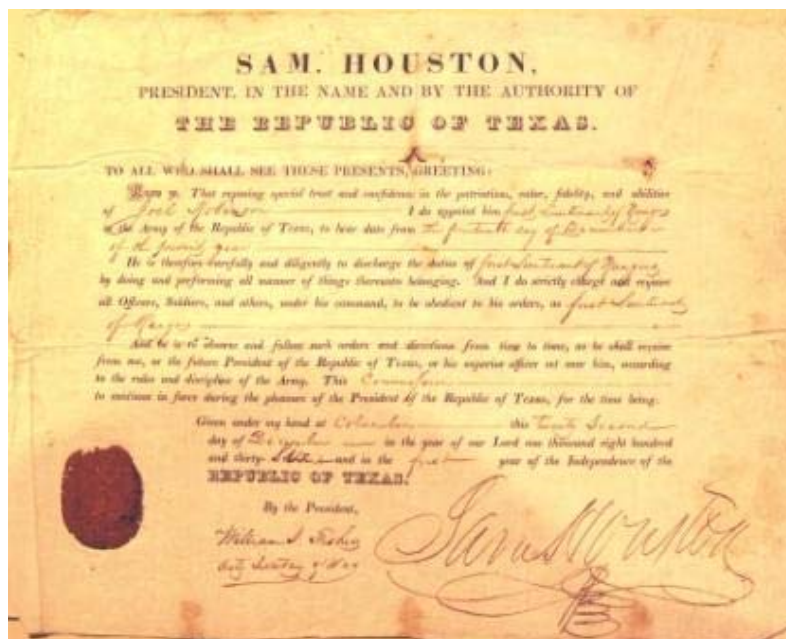 SAM. HOUSTON,
PRESIDENT, IN THE NAME AND BY THE AUTHORITY OF
THE REPUBLIC OF TEXAS.
TO ALL WHO SHALL SEE THESE PRESENTS, GREETING:
Know ye, That reposing special trust and confidence in the patriotism, valor, fidelity, and abilities
of Joel Robinson I do appoint him first Lieutenant of Rangers
in the Army of the Republic of Texas, to bear date from the day of December
of the present year
He is therefore carefully and diligently to discharge the duties of first Lieutenant of Rangers
by doing and performing all manner of things thereunto belonging. And I do strictly charge and require
all Officers, Soldiers, and others, under his command, to be obedient to his orders, as first Lieutenant
of Rangers
And he is to observe and follow such orders and directions from time to time, as he shall receive
from me, or the future President of the Republic of Texas, or his superior officer set over him, according
to the rules and discipline of the Army. This Commission
to continue in force during the pleasure of the President of the Republic of Texas, for the time being.
Given under my hand at Columbia this Second
day of December in the year of our Lord one thousand eight hundred
and thirty- and in the first year of the Independence of the
REPUBLIC OF TEXAS.
By the President,
William S. Fisher
Secretary of War
Sam Houston